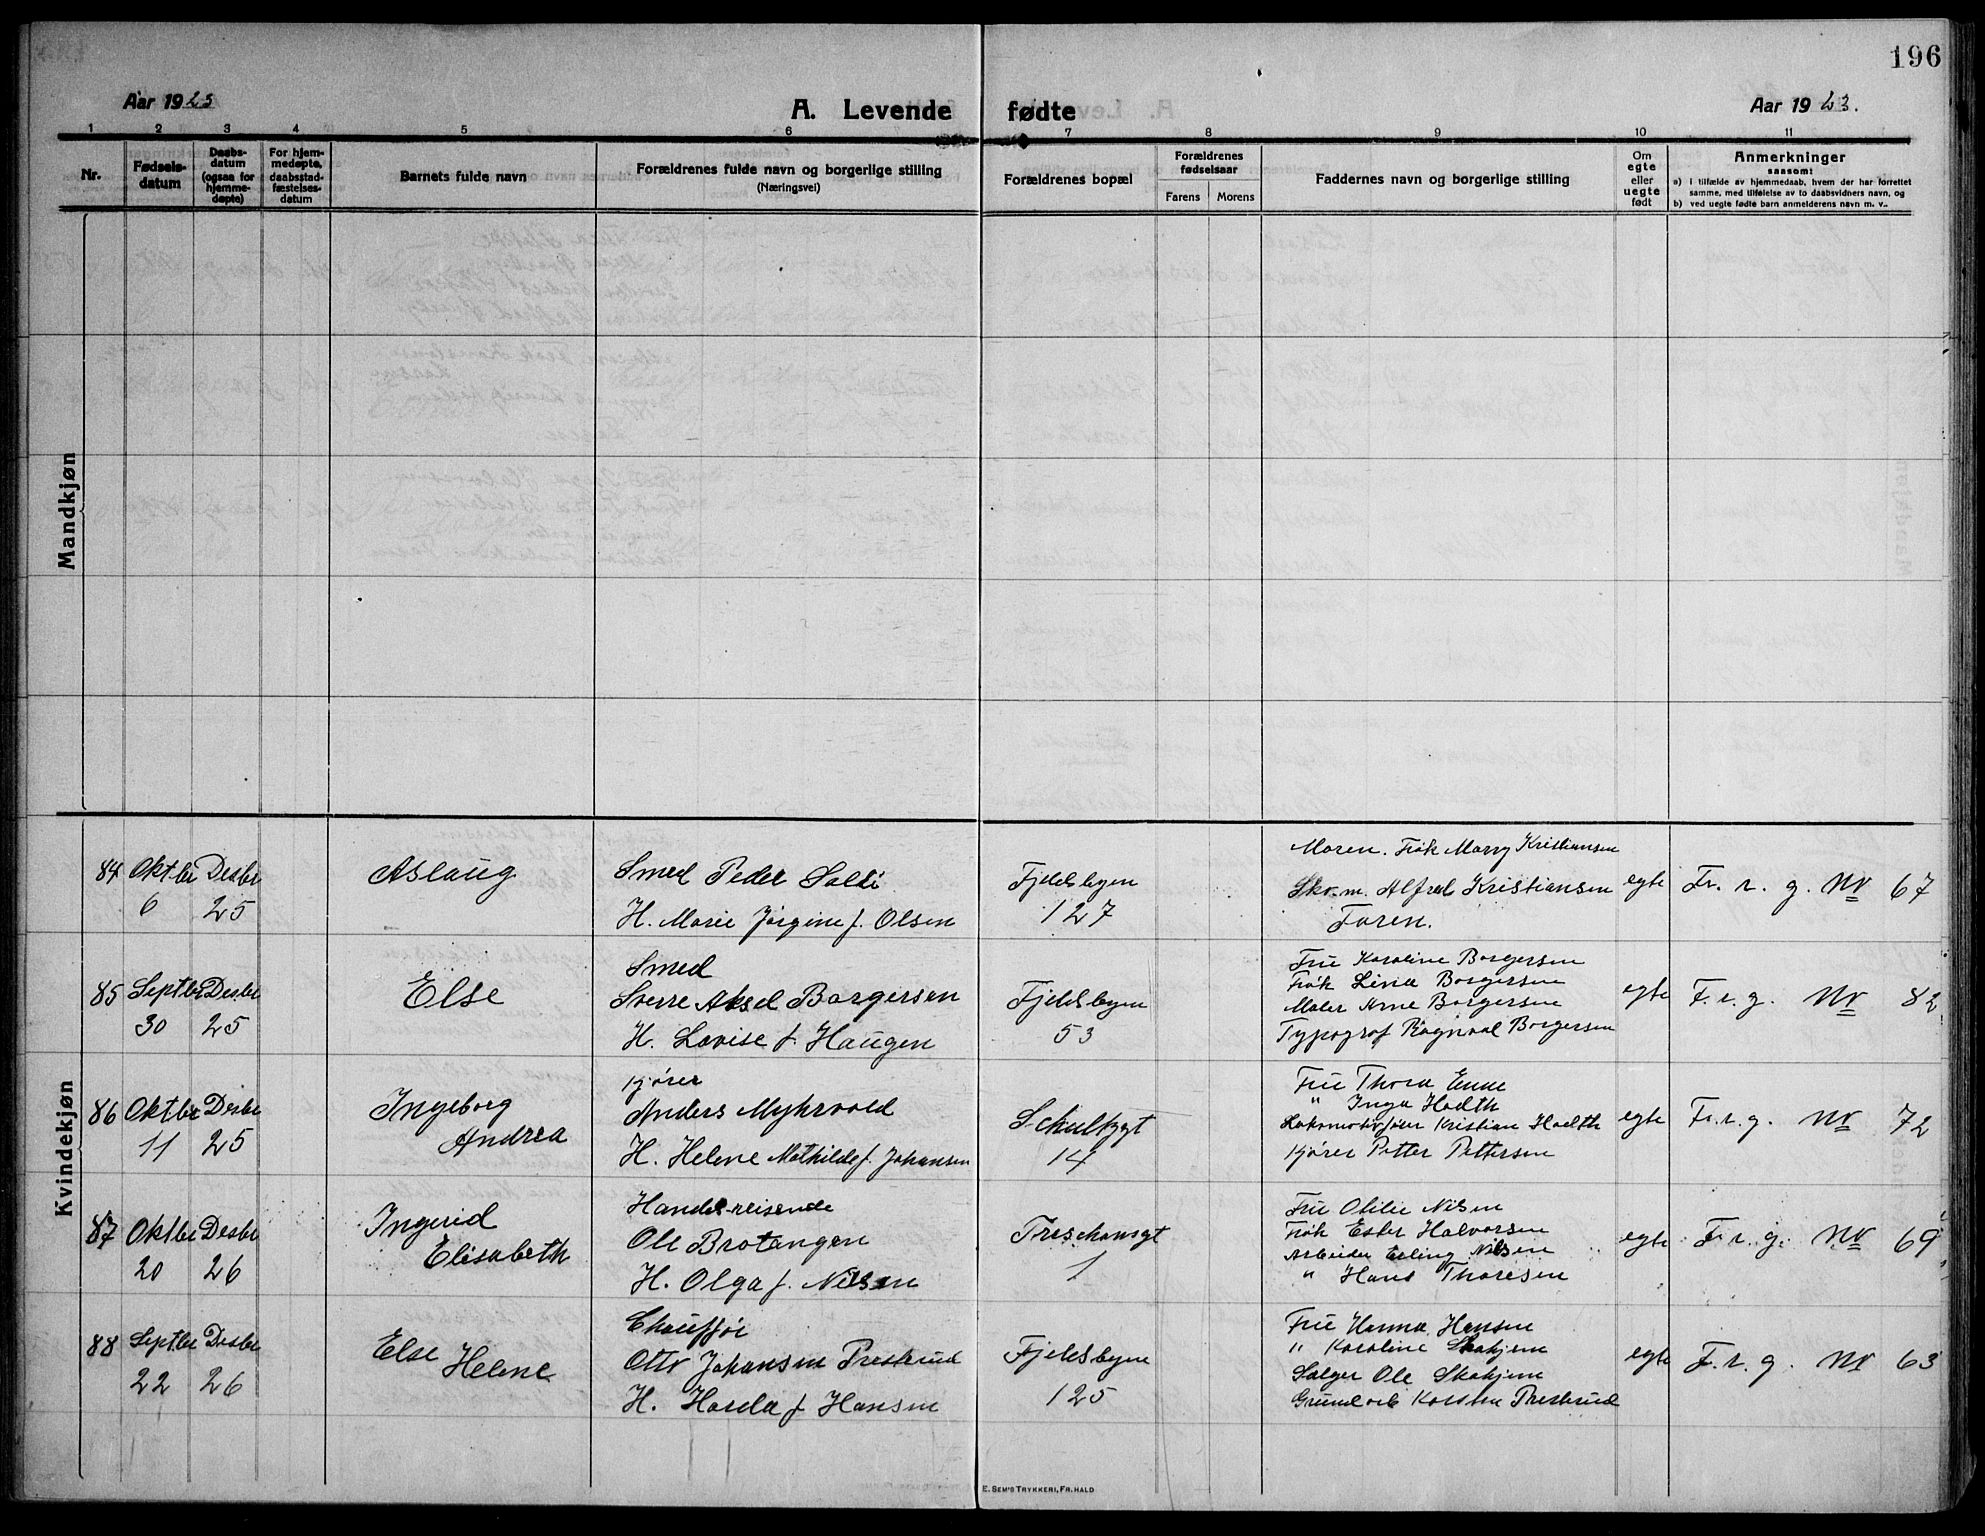 196
Aar 1923
A. Levende fødte
Aar 1923.
1 2 3 4 5 6 7 8 9 10 11
Nr.
Fødsels-
datum
Daabs-
datum
(ogsaa for
hjemme-
døpte)
For hjem-
medøpte,
daabsstad-
fæstelses-
datum
Barnets fulde navn
Forældrenes fulde navn og borgerlige stilling
(Næringsvei)
Forældrenes bopæl
Forældrenes
fødselsaar
Farens Morens
Faddernes navn og borgerlige stilling
Om
egte
eller
uegte
født
Anmerkninger
saasom:
a) i tilfælde av hjemmedaab, hvem der har forrettet
samme, med tilføielse av to daabsvidners navn, og
b) ved uegte fødte barn anmelderens navn m. v..
Mandkjøn
Kvindekjøn
84 Oktbr 6 Desbr 25
Aslaug
Smed Peder Solli
H. Marie Jørgine f. Olsen
Fjeldsbyen
127
Moren. Frøk Marry Kristiansen
Skv.m. Alfred Kristiansen
Faren.
egte
Fr. r. g. Nr 67
85 Septbr 30 Desbr 25
Else
Smed
Sverre Aksel Borgersen
H. Lovise f. Haugen
Fjeldsbyen
53
Fru Karoline Borgersen
Frøk Lina Borgersen
Maler Arne Borgersen
Typograf Ragnval Borgersen
egte
F. r. g. Nr 82
86 Oktbr 11 Desbr 25
Ingeborg
Andrea
Kjører
Anders Myhrvold
H. Helene Mathilde f. Johansen
Schultzgt
14
Fru Thora Enne
" Inga Hoelth
Lokomotivfører Kristian Hoelth
Kjører Petter Pettersen
egte
F. r. g. Nr 72
87 Oktbr 20 Desbr 26
Ingerid
Elisabeth
Handelsreisende
Ole Brotangen
H. Olga f. Nilsen
Treschowsgt
1
Fru Otilie Nilsen
Frøk Ester Halvorsen
Arbeider Erling Nilsen
" Hans Thoresen
egte
F. r. g. Nr 69
88 Septbr 22 Desbr 26
Else
Helene
Chauffør
Otto Johansen Presterud
H. Harda f Hansen
Fjeldsbyen
125
Fru Hanna Hansen
" Karoline Skahjem
Selger Ole Skahjem
Grundarb Karsten Presterud
egte
F. r. g. Nr 63
E. SEM'S TRYKKERI, FR. HALD